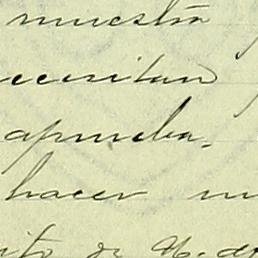 muestra
ecesitan
aprueba,
hacer
ito de